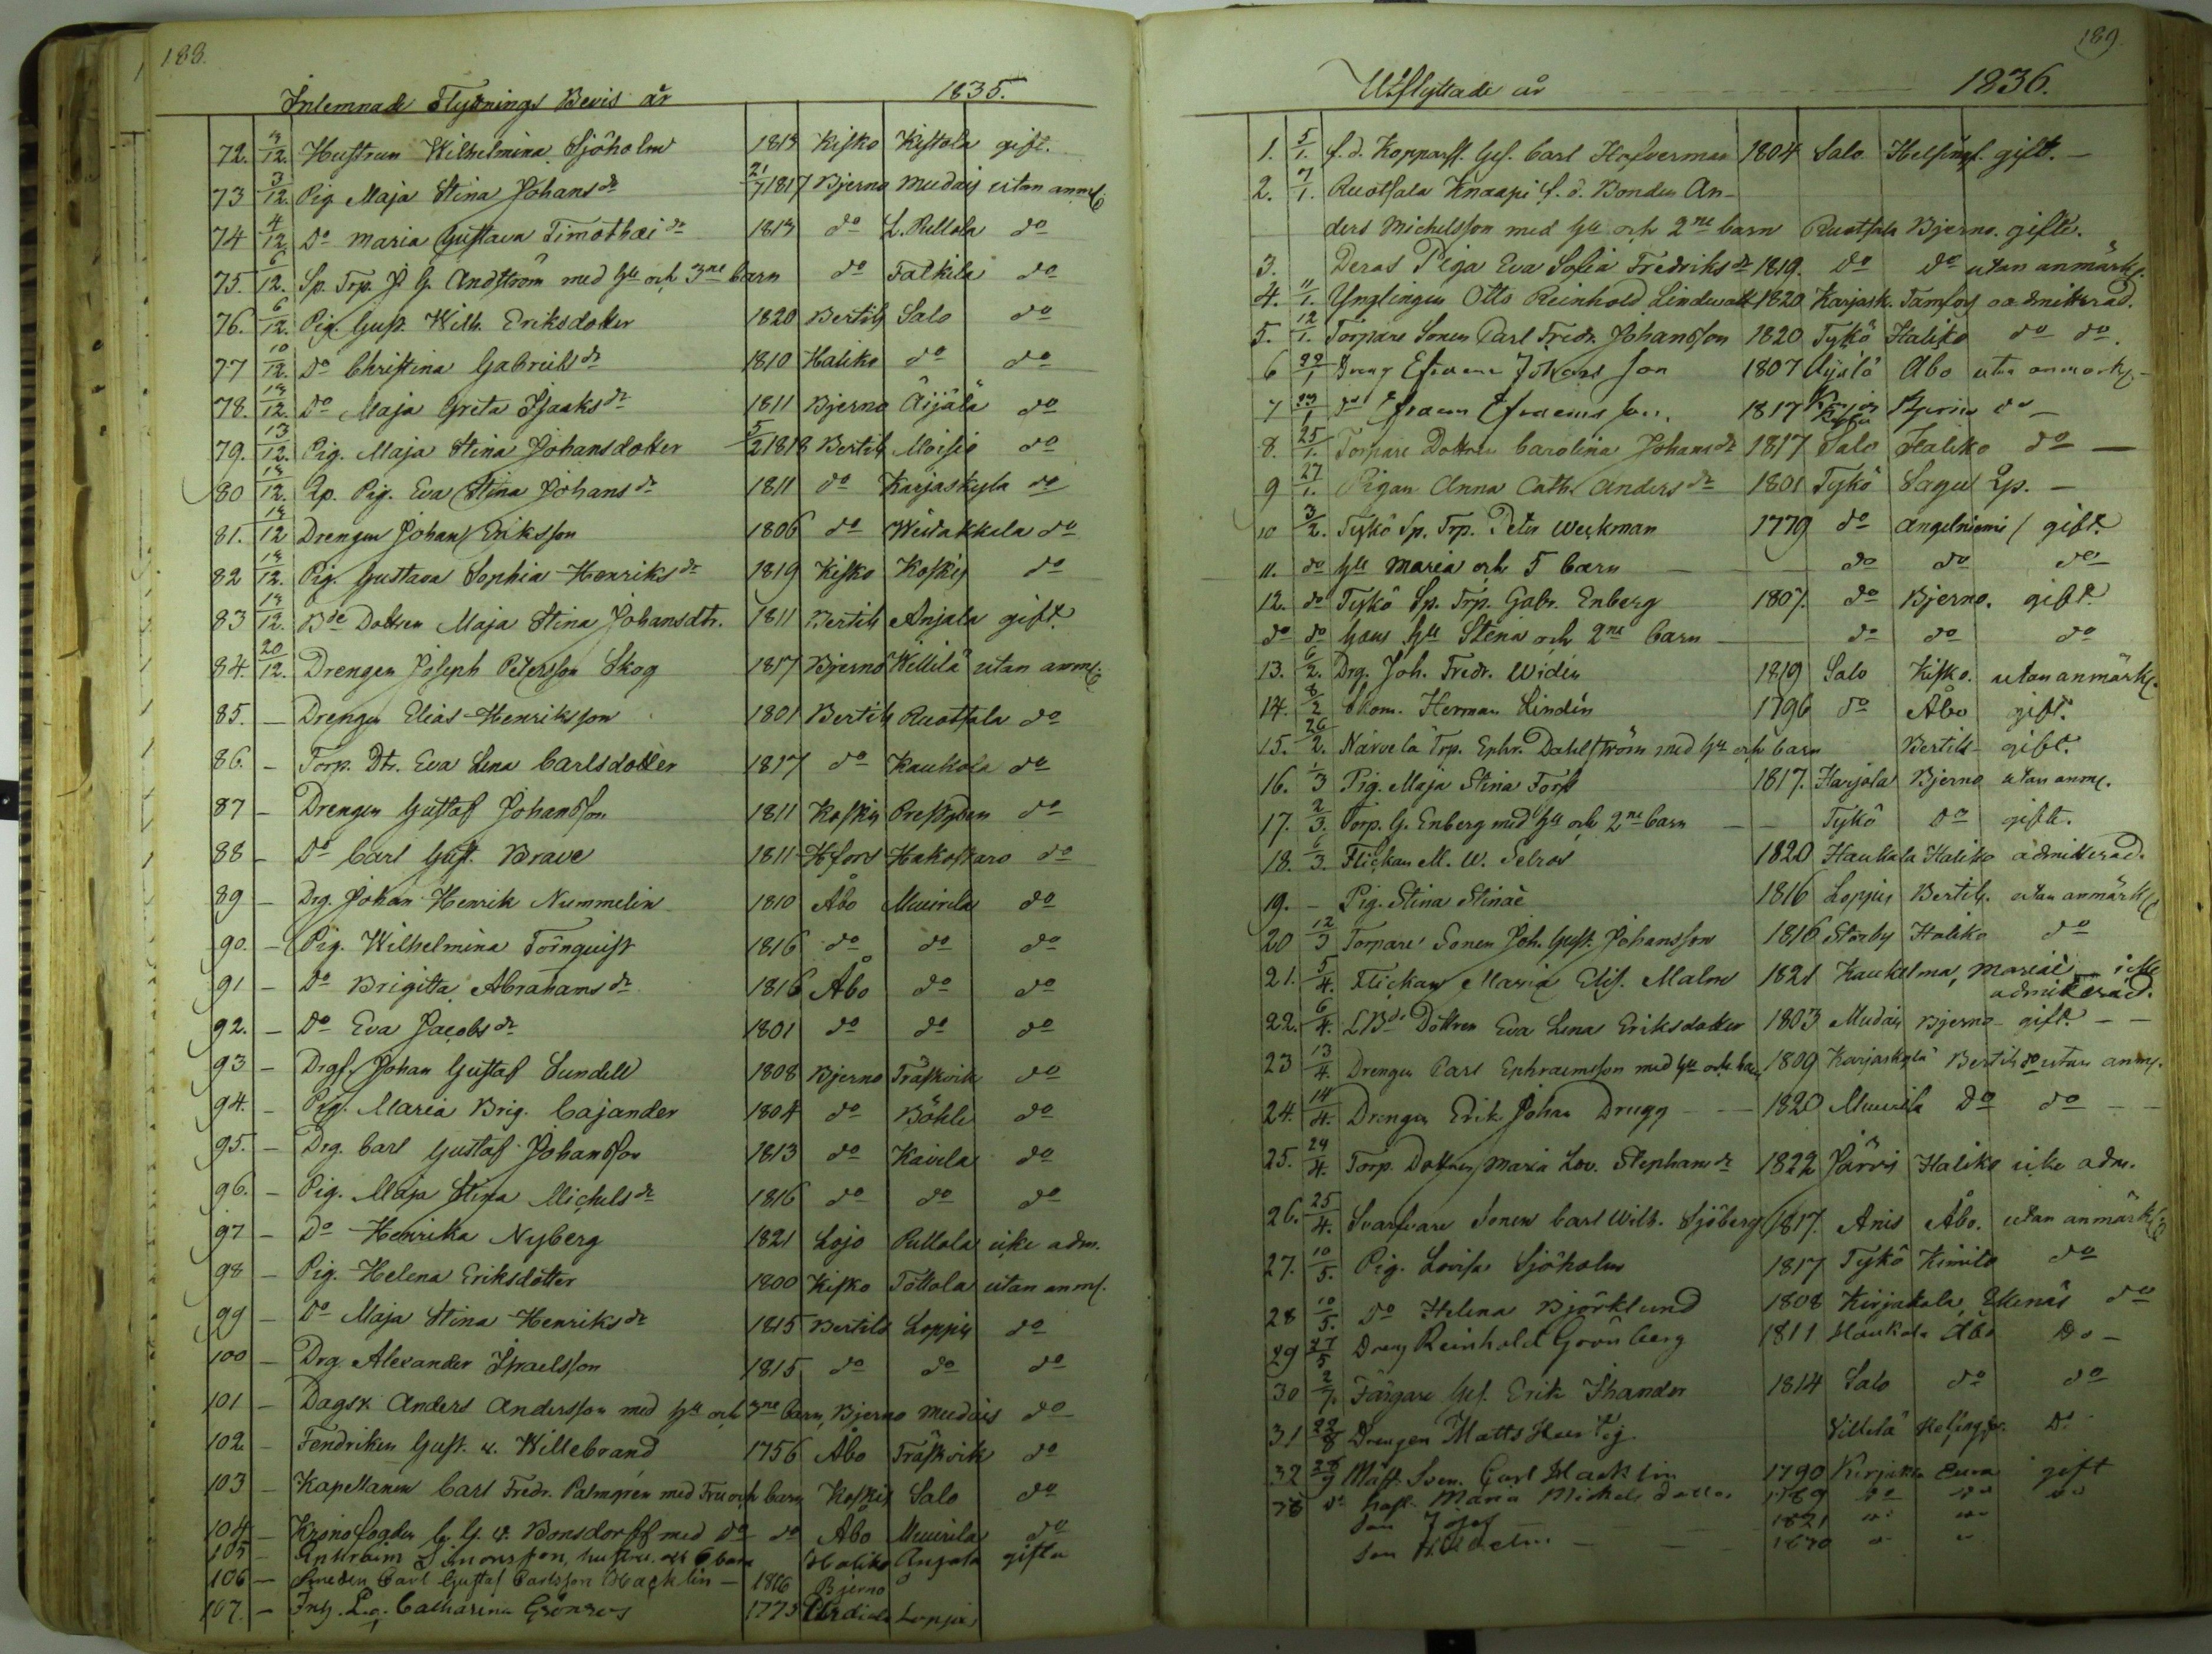 188.
Inlemnade Flyttnings Bevis år 1835.
72. 12. Hustrun Wilhelmina Sjöholm 1813 Kisko Kistola gift.
73 3/12. Pig. Maja Stina Johansdr 21/7 1817 Bjerno Mudais utan anm.
74 4/12. Do Maria Gustava Timothæidr 1813 do L. Pullola do
75. 6/12. Sp. Trp. J. G. Andström med Hu och 3ne barn do Talkila do
76. 6/12. Pig. Gust. Wilh. Eriksdotter 1820 Bertils Salo do
77 10/12. Do Christina Gabrielsdr 1810 Haliko do do
78. 12. Do Maja Greta Isaaksdr 1811 Bjerno Äijälä do
79. 13/12. Pig. Maja Stina Johansdotter 5/2 1818 Bertils Moisio do
80 12. Pig. Eva Stina Johansdr 1811 do Karjaskyla do
81. 12 Drengen Johan Eriksson 1806 do do
82 12. Pig. Gustava Sophia Henriksdr 1819 Kisko Koskis do
83 12. Bde Dottren Maja Stina Johansdtr. 1811 Bertils Anjala gift.
84. 20/12. Drengen Joseph Petersson Skog 1817 Bjerno Willilä utan anm.
85. — Drengen Elias Henriksson 1801 Bertils Ruotsala do
86. — Torp. Dtr. Eva Lena Carlsdotter 1817 do Kaukola do
87 — Drengen Gustaf Johansson 1811 Koskis do
88 — Do Carl Gust. Brave 1811 H:fors Hakostaro do
89 — Drg. Johan Henrik Nummelin 1810 Åbo Muurila do
90. — Pig. Wilhelmina Törnquist 1816 do do do
91 — Do Brigitta Abrahamsdr 1816 Åbo do do
92. — Do Eva Jacobsdr 1801 do do do
93 — Johan Gustaf Sundell 1808 Bjerno Träskvik do
94. — Pig. Maria Brig. Cajander 1804 do Böhle do
95. — Drg. Carl Gustaf Johansson 1813 do Kaivila do
96. — Pig. Maja Stina Michelsdr 1816 do do do
97 — Do Henrika Nyberg 1821 Lojo Pullola icke adm.
98 — Pig. Helena Eriksdotter 1800 Kisko Töttola utan anm.
99 — Do Maja Stina Henriksdr 1815 Bertils Loppis do
100 — Drg. Alexander Israelsson 1815 do do do
101 — Dagsk. Anders Andersson med Hu och 3ne barn, Bjerno Mudais do
102. — Fendriken Gust. v. Willebrand 1756 Åbo Träskvik do
103 — Kapellanen Carl Fredr. Palmgren med Fru och barn Koskis Salo do
104 — Kronofogden G. G. v. Bonsdorff med do do Åbo Muurila do
105 — Ephraim Simonsson, hustru och 6 barn Haliko Anjala gifta
106 — Smeden Carl Gustaf Carlsson Hacklin — 1816 Bjerno
107. — Catharina Grönroos 1775 Loppis
189.
Utflyttade år 1836.
1. 5/1. f. d. Gef. Carl Hofverman 1804 Salo Helsingf. gift. —
2. 7/1. Ruotsala Knaapi f. d. Bonden An-
ders Michelsson med Hu och 2ne barn Ruotsala Bjerno. gifte.
3. Deras Piga Eva Sofia Fredriksdr 1819. do do utan anmärk.
4. 11/1. Ynglingen Otto Reinhold 1820 Karjask. Tamfors oadmitterad.
5. 12/1. Torpare Sonen Carl Fredr. Johansson 1820 Tykö Haliko do do.
6 22/1 Dreng Efraim Johans Son 1807 Äijälä Åbo utan anmärk. —
7 23/1 do Efraim Efraims Son. 1817 Bjerno do —
8. 25/1. Torpare Dottren Carolina Johansdr 1817 Salo Haliko do —
9 27/1. Pigan Anna Cath. Andersdr 1801 Tykö Sagu Lp. —
10 3/2. Tykö Sp. Trp. Peter Weckman 1779 do Angelniemi gift
11. do Hu Maria och 5 barn — do do do
12. do Tykö Sp. Trp. Gabr. Enberg 1807. do Bjerno. gift.
do do hans Hu Stina och 2ne barn — do do do
13. 6/2. Drg. Joh. Fredr. Widén 1819 Salo Kisko. utan anmärk.
14. 8/2 Skom. Herman Lindén 1796 do Åbo gift.
15. 26/2. Närvelä Trp. Ephr. Dahlström med Hu och barn Bertils gift.
16. 1/3 Pig. Maja Stina Forss 1817. Harjola Bjerno utan anm.
17. 2/3. Torp. G. Enberg med Hu och 2ne barn — Tykö do gifte.
18. 6/3. Flickan M. W. Selros 1820 Haukala Haliko admitterad.
19. — Pig. Stina Stinaë 1816 Loppis Bertils. utan anmärk
20 12/3 Torpare Sonen Joh. Gust. Johansson 1816 Storby Haliko do
21. 5/4. Flickan Maria Elis. Malm 1821 Kaukelma, Mariæ icke
admitterad.
22. 6/4. LBde Dottren Eva Lena Eriksdotter 1803 Mudais Bjerno gift. — —
23 13/4. Drengen Carl Ephraimsson med Hu och barn 1809 Karjaskylä Bertils utan anm.
24. 14/4. Drengen Erik Johan Drugg — — 1820 Muurila do do — —
25. 24/4. Torp. Dottren Maria Lov. Stephansdr 1822 Järvis Haliko icke adm.
26. 25/4. Svarfvare Sonen Carl Wilh. Sjöberg 1817. Anis Åbo. utan anmärk
27. 10/5. Pig. Lovisa Sjöholm 1817 Tykö Kimito do
28 10/5. do Helena Björklund 1808 Kirjakala, Ekenäs do
29 27/5 Dreng Reinhold Grönberg 1811 Haukala Åbo Do —
30 2/7. Färgare Gef. Erik Ihander 1814 Salo do do
31 22/8 Drengen Matts Hurtig. Villilä Helsingfor. Do
32 28/9 Mäst. Sven. Carl Hacklin 1790 Kirjakala Eura gift
do Maria Michels dotter 1789 do do do
Son Josef — 1821 do do
Son Wilhelm — —